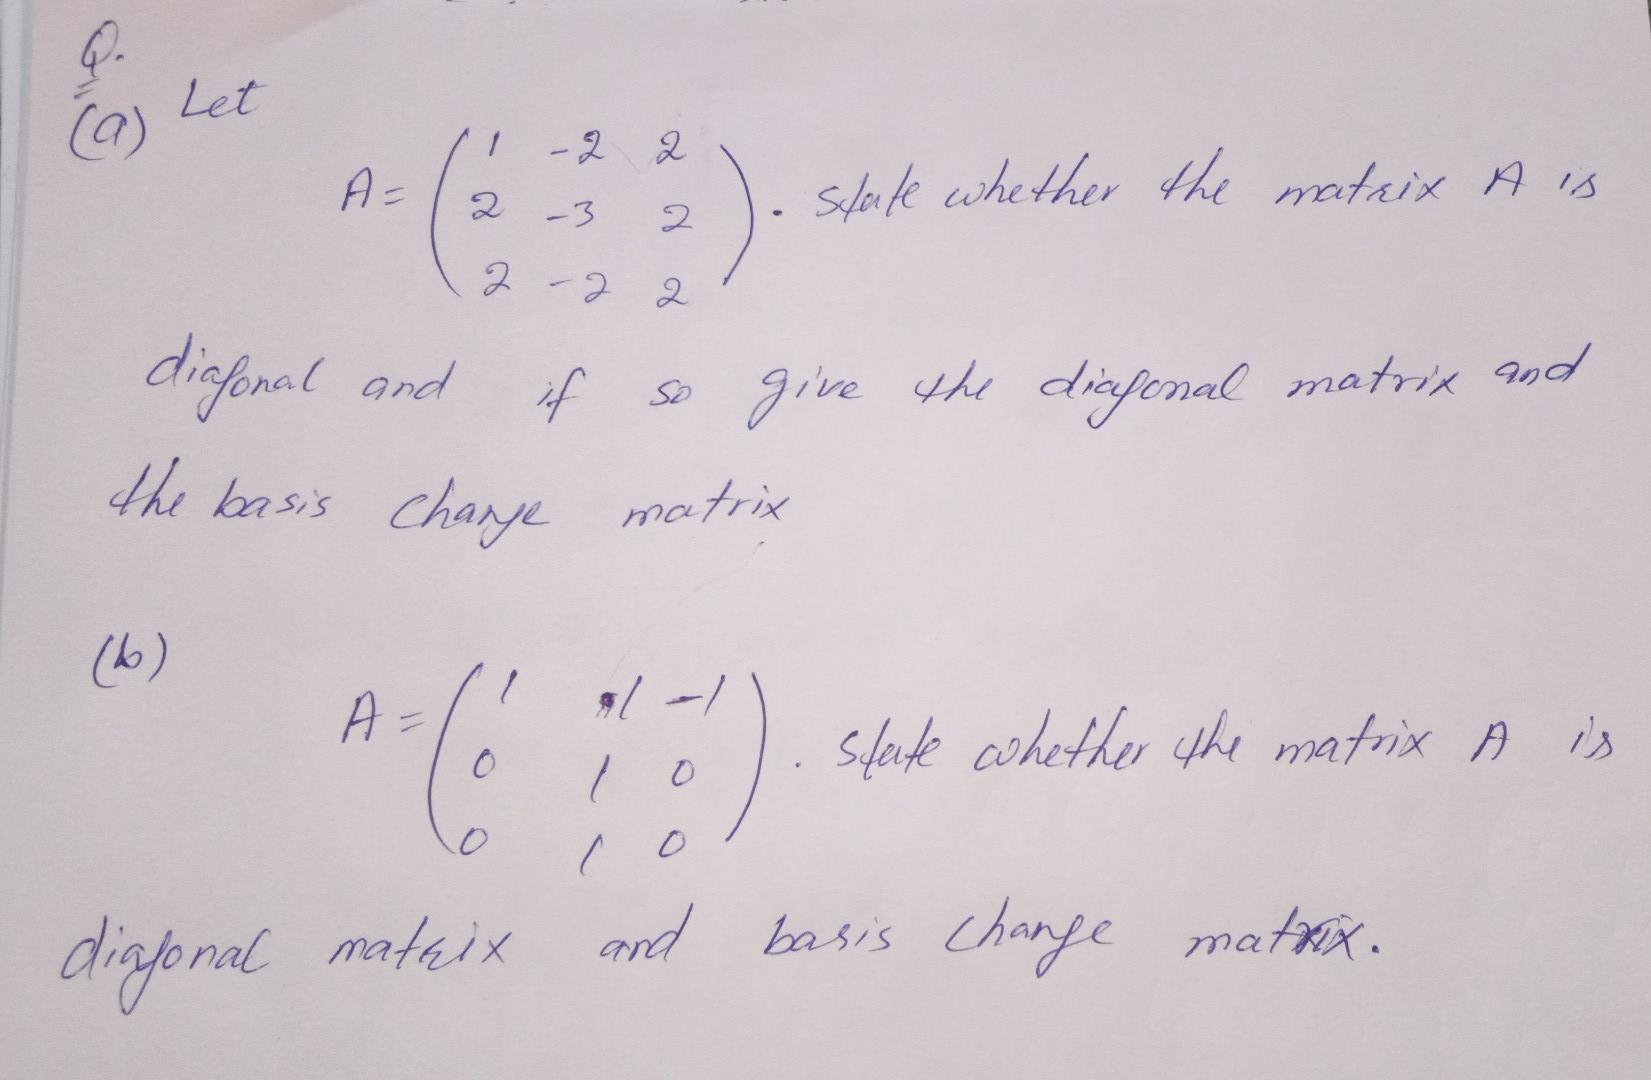 Q.
(a) Let
A = ( 1 -2 2
2 -3 2
2 -2 2 ). state whether the matrix A is
diagonal and if so give the diagonal matrix and
the basis change matrix
(b)
A = ( 1 1 -1
0 1 0
0 1 0 ). state whether the matrix A is
diagonal matrix and basis change matrix.